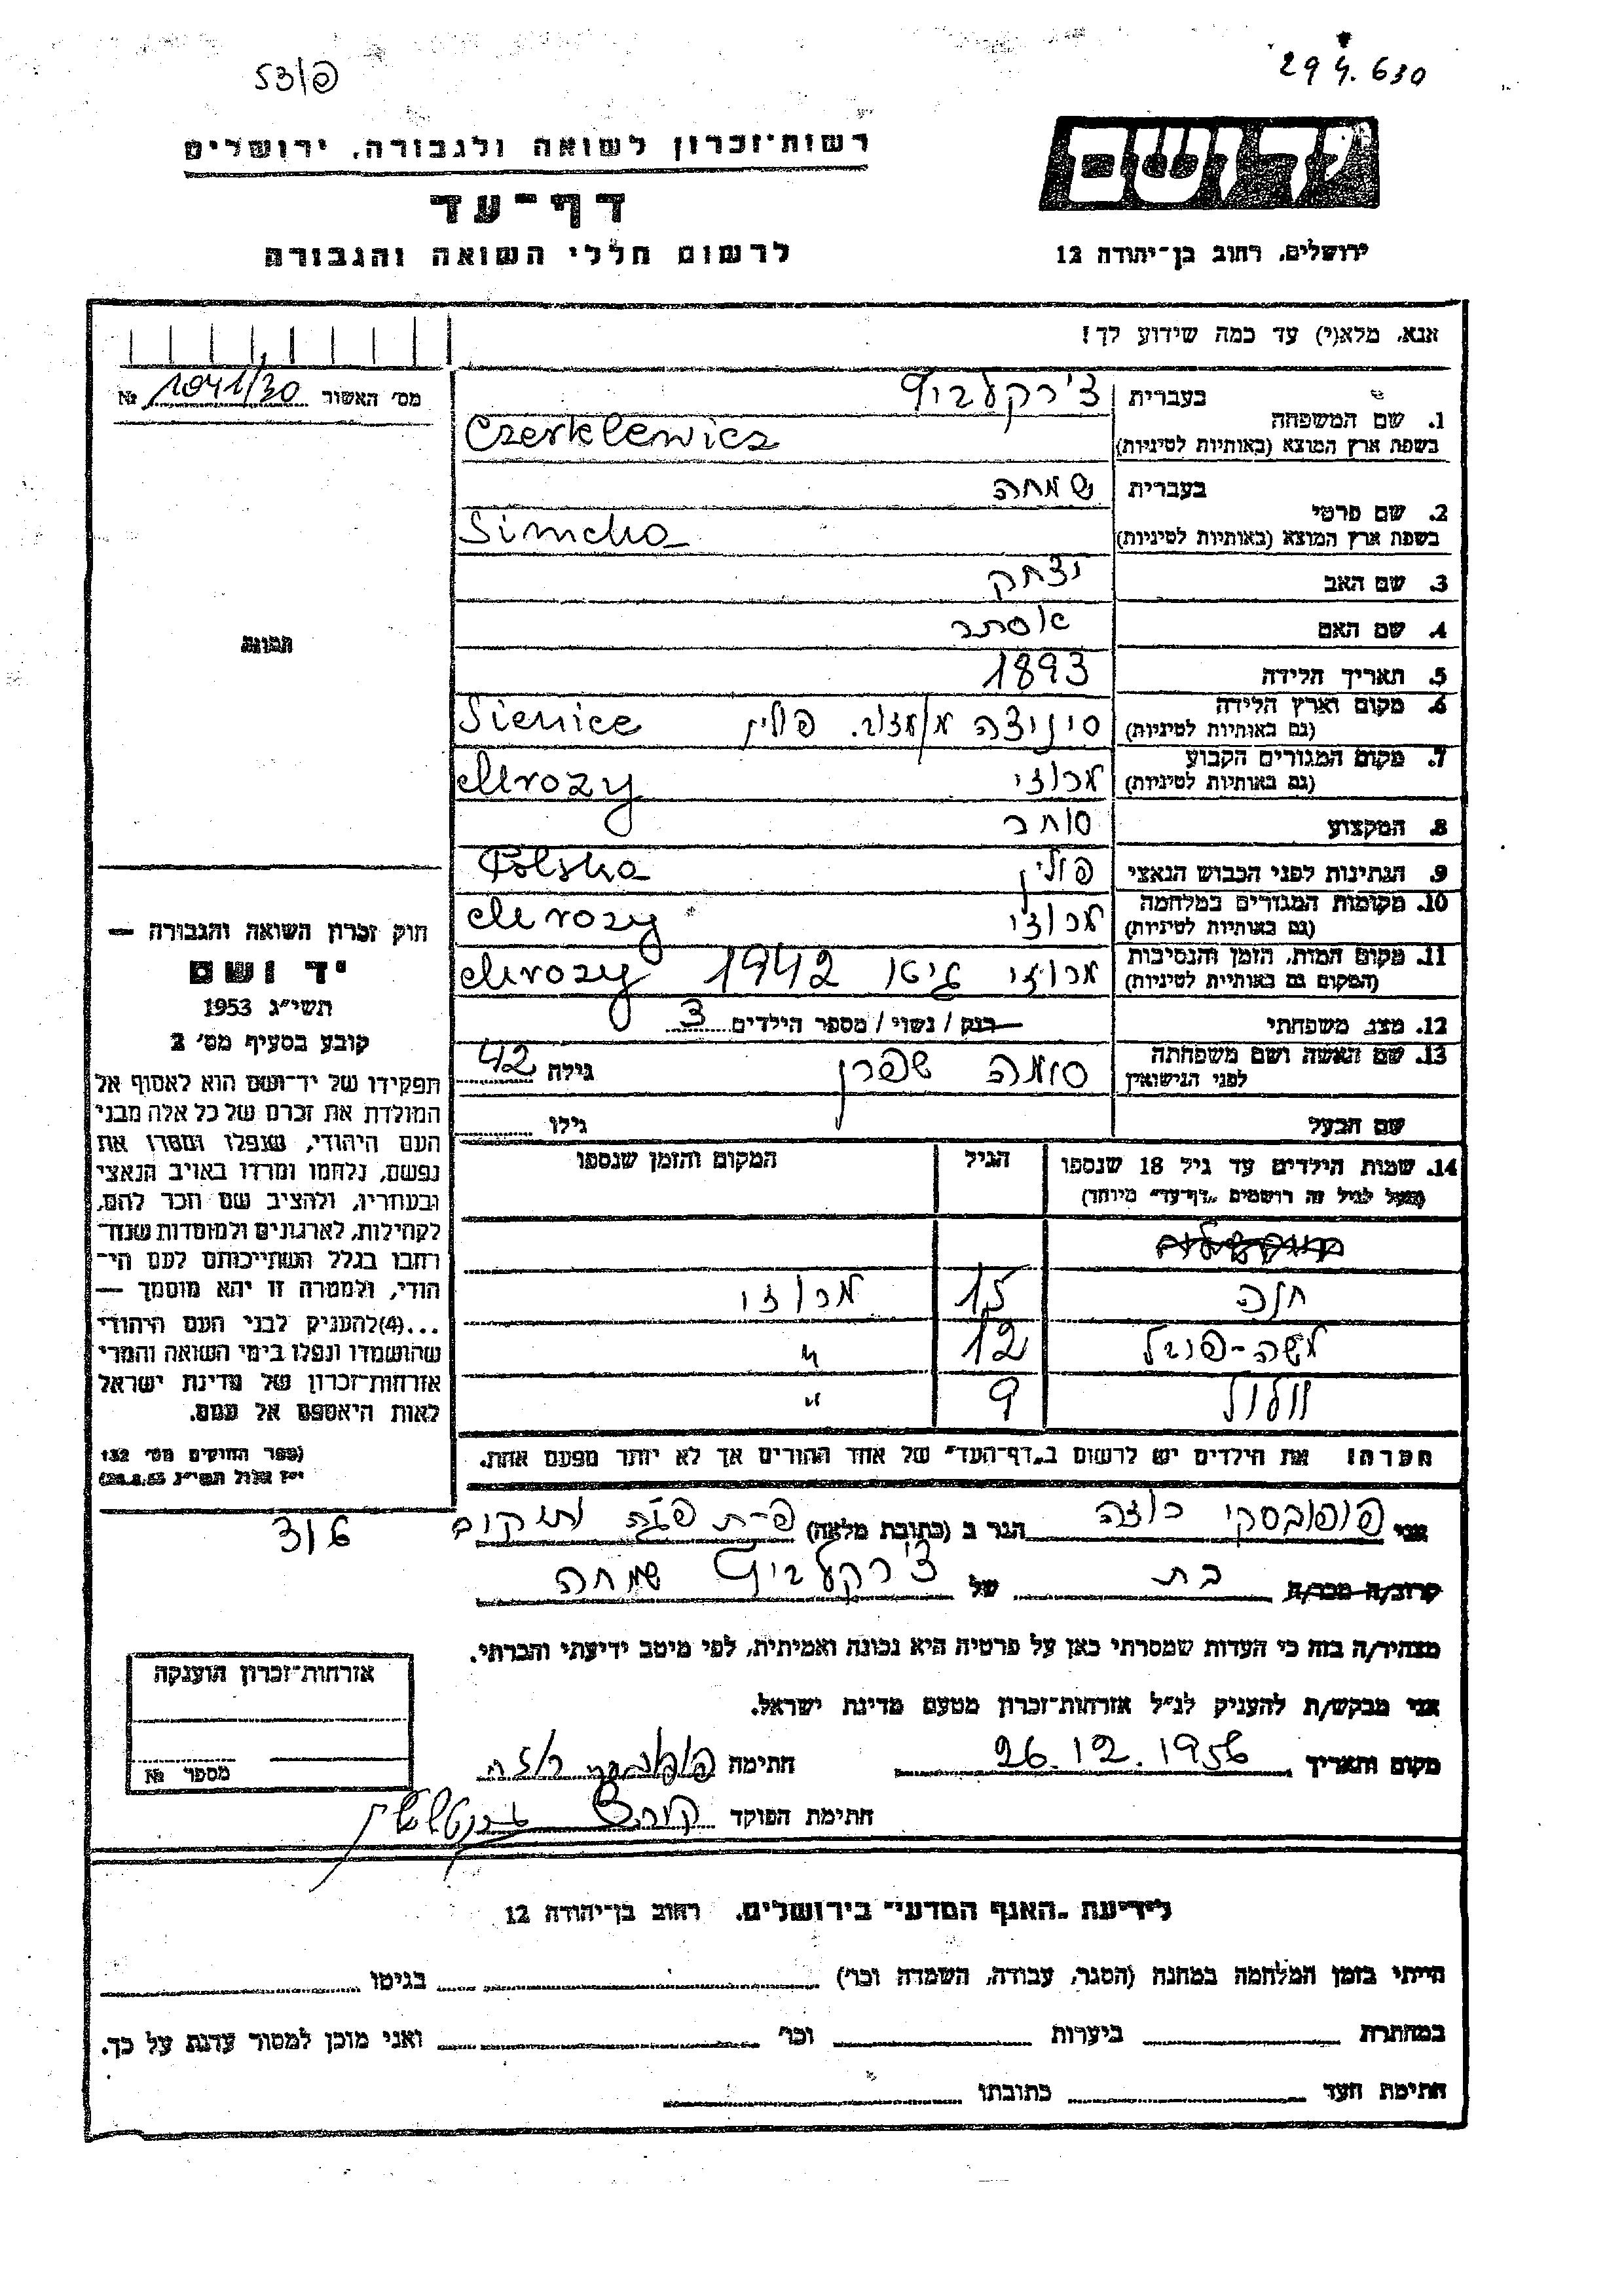 פ/53
294.630
יד ושם
ירושלים, רחוב בן־יהודה 12
רשות־זכרון לשואה ולגבורה, ירושלים
דף־עד
לרשום חללי השואה והגבורה
אנא, מלא(י) עד כמה שידוע לך!
מס׳ האשור 1041/30 №
1. שם המשפחה
בעברית צ׳רקלביץ
בשפת ארץ המוצא (באותיות לטיניות) Czerklewicz
2. שם פרטי
בעברית שמחה
בשפת ארץ המוצא (באותיות לטיניות) Simcha
3. שם האב יצחק
4. שם האם אסתר
5. תאריך הלידה 1893
6. מקום וארץ הלידה (גם באותיות לטיניות) סיניצה פולין Sienice
7. מקום המגורים הקבוע (גם באותיות לטיניות) מרוזי Mrozy
8. המקצוע סוחר
9. הנתינות לפני הכבוש הנאצי פולין Polska
10. מקומות המגורים במלחמה (גם באותיות לטיניות) מרוזי Mrozy
11. מקום המות, הזמן והנסיבות (המקום גם באותיות לטיניות) מרוזי גיטו 1942 Mrozy
12. מצב משפחתי רוק / נשוי / מספר הילדים 3
13. שם האשה ושם משפחתה לפני הנישואין שפרן גילה 42
שם הבעל גילו
14. שמות הילדים עד גיל 18 שנספו (מעל לגיל זה רושמים „דף־עד״ מיוחד) הגיל המקום והזמן שנספו
חנה 15 מרוזי
משה- 12 "
9 "
הערה! את הילדים יש לרשום ב„דף־העד״ של אחד ההורים אך לא יותר מפעם אחת.
תמונה
חוק זכרון השואה והגבורה —
יד ושם
תשי״ג 1953
קובע בסעיף מס׳ 2
תפקידו של יד־ושם הוא לאסוף אל
המולדת את זכרם של כל אלה מבני
העם היהודי, שנפלו ומסרו את
נפשם, נלחמו ומרדו באויב הנאצי
ובעוזריו, ולהציב שם וזכר להם,
לקהילות, לארגונים ולמוסדות שנח־
רבו בגלל השתייכותם לעם הי־
הודי, ולמטרה זו יהא מוסמך —
...(4)להעניק לבני העם היהודי
שהושמדו ונפלו בימי השואה והמרי
אזרחות־זכרון של מדינת ישראל
לאות היאספם אל עמם.
(ספר החוקים מס׳ 132
י״ז אלול תשי״ג 28.8.53)
אני פופובסקי רוזה הגר ב (כתובת מלאה) פ-ת
קרוב/ה מכר/ה בת של צ׳רקלביץ שמחה
מצהיר/ה בזה כי העדות שמסרתי כאן על פרטיה היא נכונה ואמיתית, לפי מיטב ידיעתי והכרתי.
אני מבקש/ת להעניק לנ״ל אזרחות־זכרון מטעם מדינת ישראל.
מקום ותאריך 26.12.1956 חתימה פופובסקי רוזה
חתימת הפוקד
אזרחות־זכרון הוענקה
מספר №
לידיעת „האגף המדעי״ בירושלים, רחוב בן־יהודה 12
הייתי בזמן המלחמה במחנה (הסגר, עבודה, השמדה וכו׳) בגיטו
במחתרת ביערות וכו׳ ואני מוכן למסור עדות על כך.
חתימת העד כתובתו